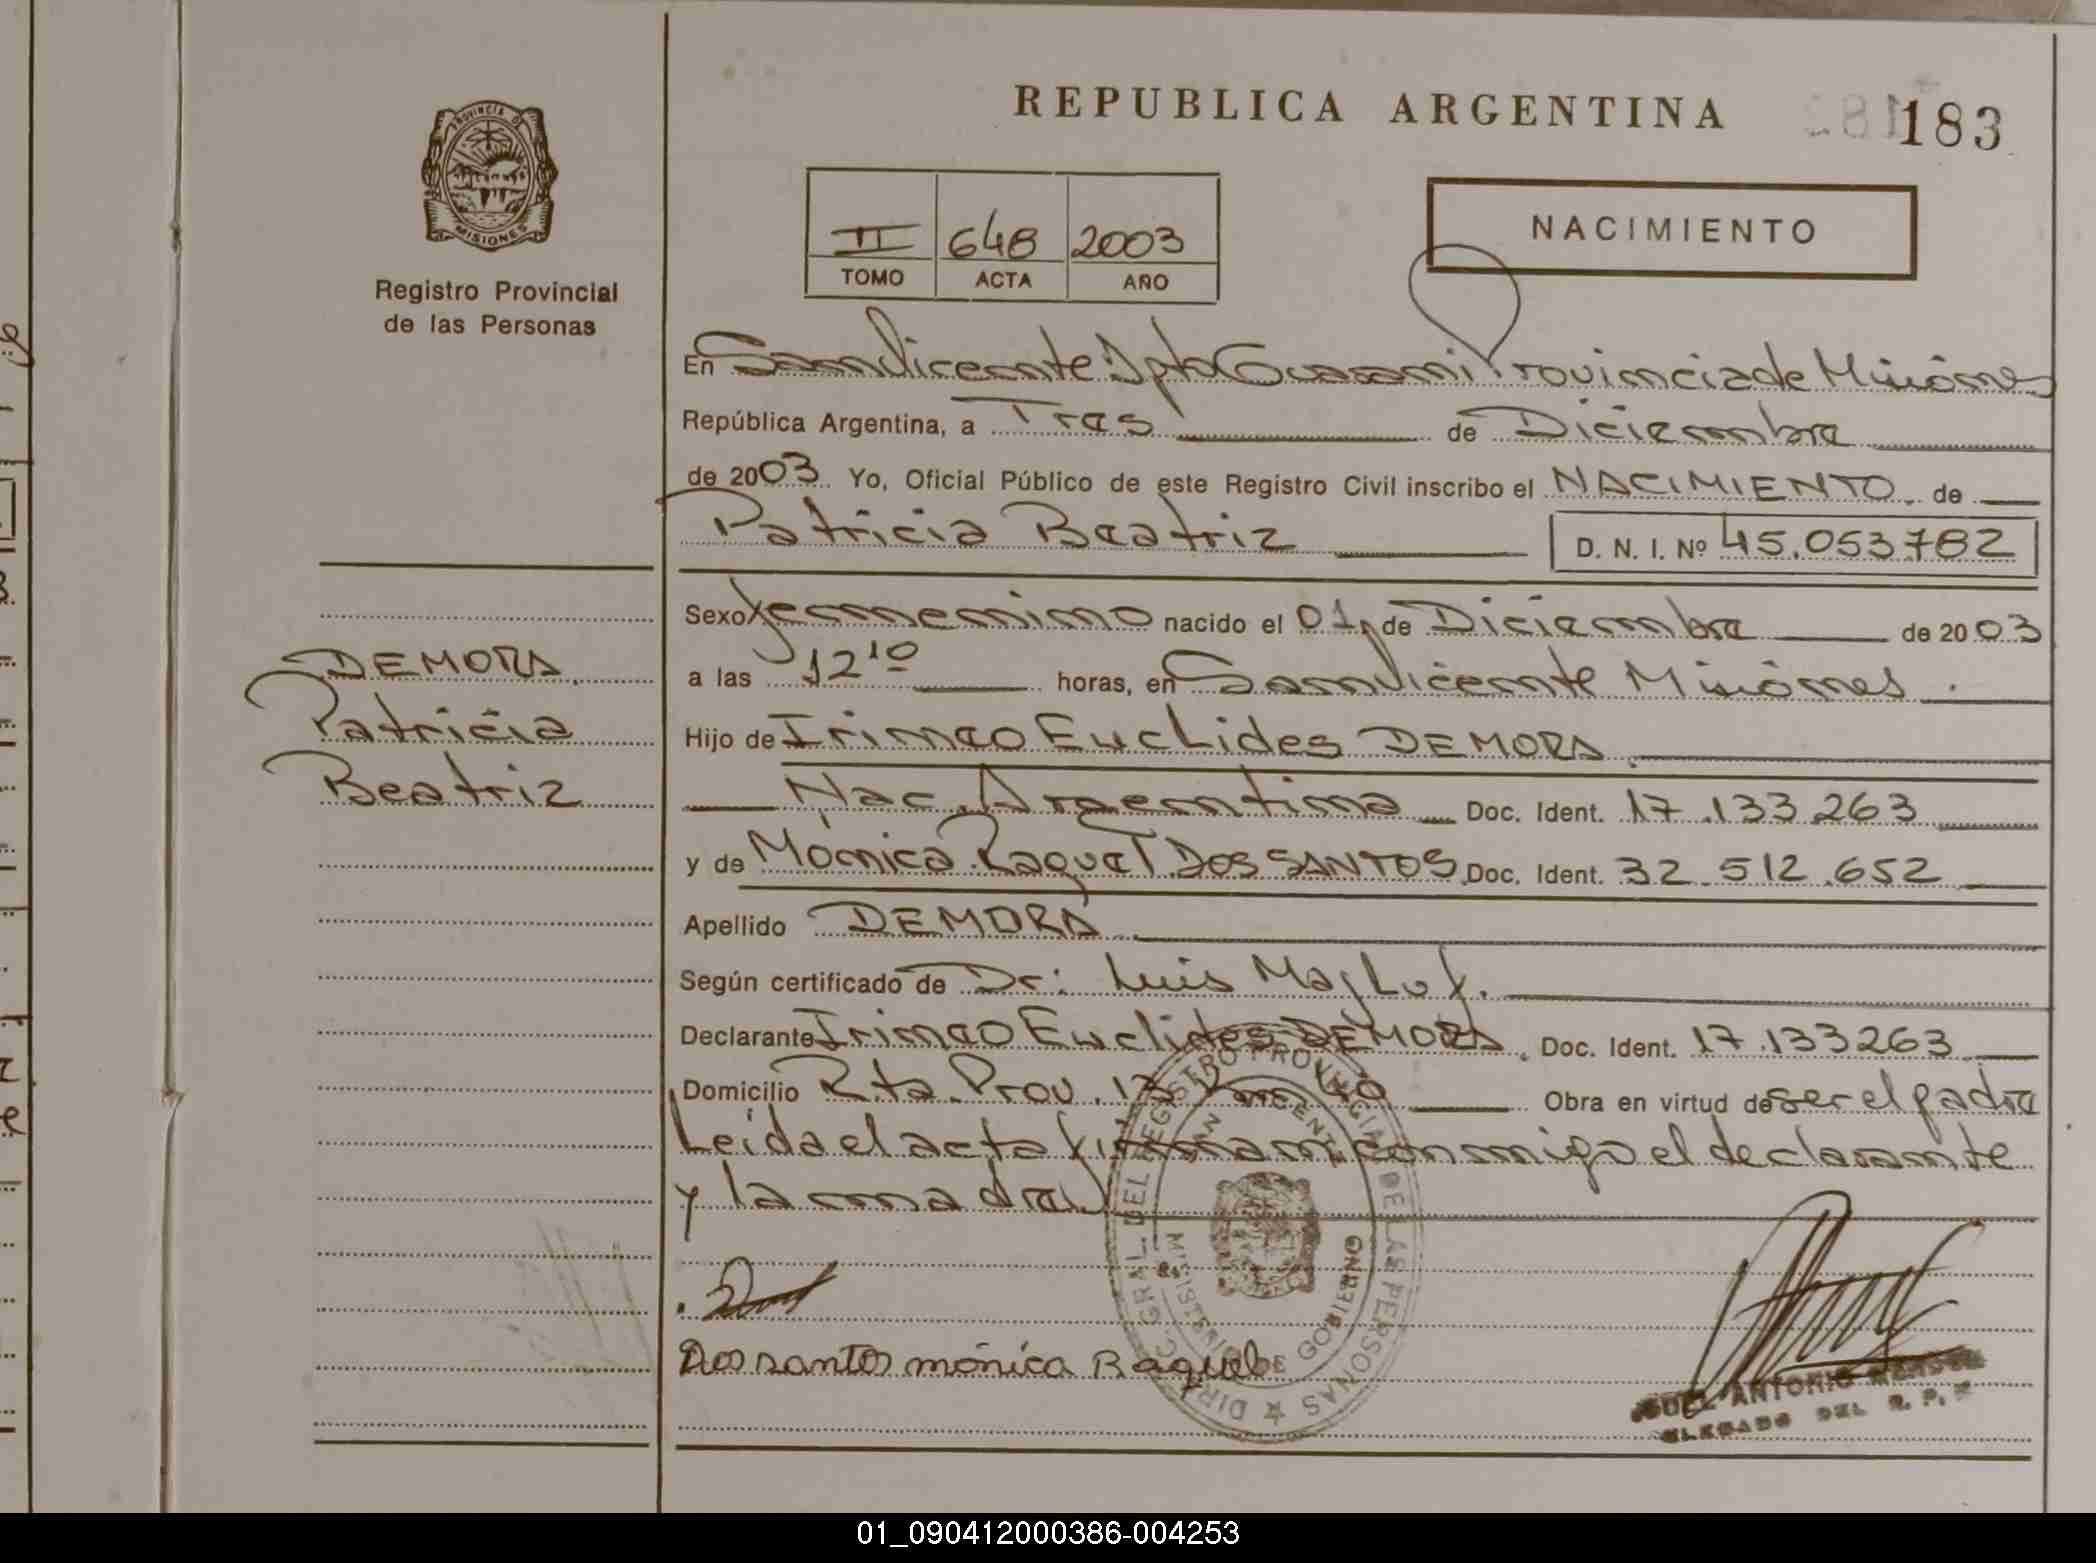 REPUBLICA ARGENTINA
183
PROVINCIA DE
MISIONES
Registro Provincial
de las Personas
II 648 2003
TOMO ACTA AÑO
NACIMIENTO
En San Vicente Dpto Guaraní Provincia de Misiónes
República Argentina, a Tres de Diciembre
de 2003 Yo, Oficial Público de este Registro Civil inscribo el NACIMIENTO de
Patricia Beatriz D. N. I. Nº 45.053.782
Sexo femenino nacido el 01 de Diciembre de 2003
a las 12 10 horas, en San Vicente Misiónes
Hijo de Irineo Euclides DEMORA
Nac. Argentina Doc. Ident. 17.133.263
y de Mónica Raquel DOS SANTOS Doc. Ident. 32.512.652
Apellido DEMORA
Según certificado de Dr: Luis Majluf.
Declarante Irineo Euclides DEMORA. Doc. Ident. 17.133263
Domicilio Rta. Prov. 13 Km 40 Obra en virtud de ser el padre
Leída el acta firman conmigo el declarante
y la madre
DEMORA
Patricia
Beatriz
Dos santos mónica Raquel
DIREC. GRAL. DEL REGISTRO PROVINCIAL DE LAS PERSONAS
SAN VICENTE
MINISTERIO DE GOBIERNO
ANTONIO
DEL R. P.
01_090412000386-004253